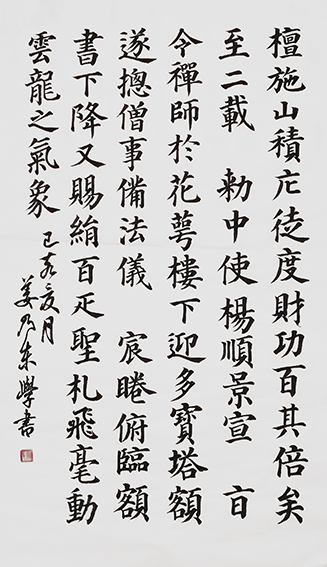 檀施山積庀徒度財功百其倍矣
至二載 勑中使楊順景宣 旨
令禪師於花萼樓下迎多寶塔額
遂摠僧事備法儀 宸睠俯臨額
書下降又賜絹百疋聖札飛毫動
雲龍之氣象
己亥夏月
姜乃东學書